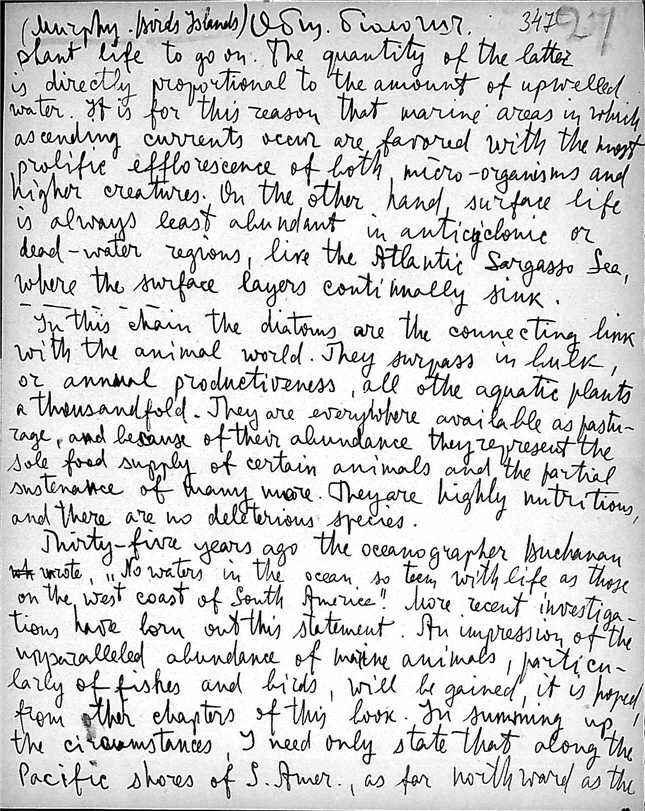 (Murphy. Birds Islands) 347 27
plant life to go on. The quantity of the latter
is directly proportional to the amount of upwelled
water. It is for this reason that marine areas in which
ascending currents occur are favored with the most
prolific efflorescence of both micro-organisms and
higher creatures. On the other hand, surface life
is always least abundant in anticyclonic or
dead-water regions, like the Atlantic Sargasso Sea,
where the surface layers continually sink.
In this chain the diatoms are the connecting link
with the animal world. They surpass in bulk,
or annual productiveness, all othe aquatic plants
a thousandfold. They are everywhere available as pastu-
rage, and because of their abundance they represent the
sole food supply of certain animals and the partial
sustenance of many more. They are highly nutritious,
and there are no deleterious species.
Thirty-five years ago the oceanographer Buchanan
wrote, "No waters in the ocean so teem with life as those
on the west coast of South America". More recent investiga-
tions have born out this statement. An impression of the
unparalleled abundance of marine animals, particu-
larly of fishes and birds, will be gained, it is hoped,
from other chapters of this book. In summing up
the circumstances, I need only state that along the
Pacific shores of S. Amer., as far northward as the